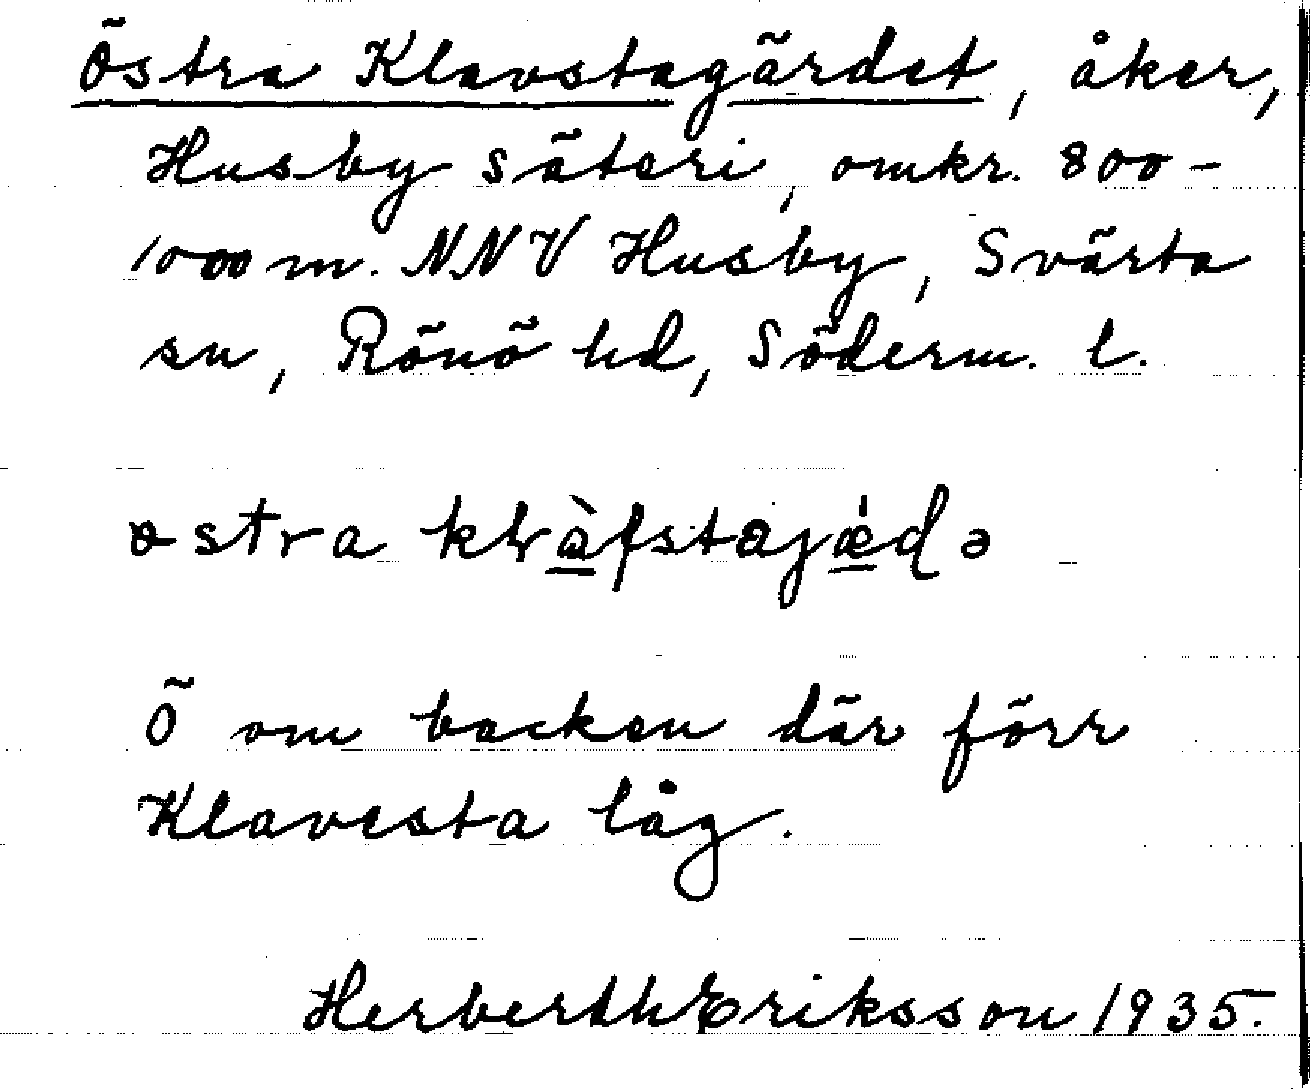 Östra Klavstagärdet, åker,
Husby säteri, omkr. 800-
1000 m. NNV Husby, Svärta
sn, Rönö hd, Söderm. l.
Ö om backen där förr
Klavesta låg.
Herberth Eriksson 1935.